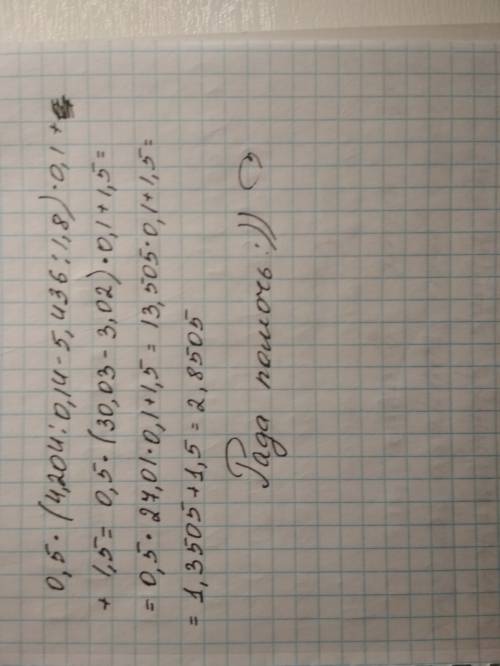 0,5·(4,204:0,14-5,436:1,8)·0,1+
+1,5=0,5·(30,03-3,02)·0,1+1,5=
=0,5·27,01·0,1+1,5=13,505·0,1+1,5=
=1,3505+1,5=2,8505
Рада помочь:))